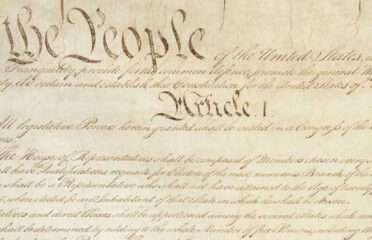 the People of the United States,
Tranquility, provide for the common defence, promote the general
ordain and establish this Constitution for the United States of
Article I
All legislative Powers herein granted shall be vested in a Congress of the
The House of Representatives shall be composed of Members chosen every
have Qualifications requisite for Electors of the most numerous Branch of the
shall be a Representative who shall not have attained to the Age of twenty
when elected, be an Inhabitant of that State in which he shall be chosen
and direct Taxes shall be apportioned among the several States which
shall be determined by adding to the whole Number of free Persons, including